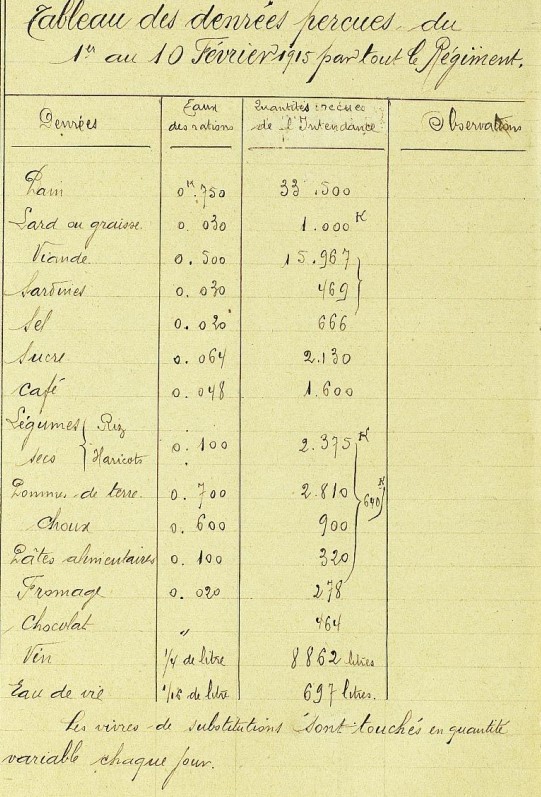 Tableau des denrées percues du
1er au 10 Février 1915 par tout le Régiment.
Denrées Taux des rations Quantités reçues de l'Intendance Observations
Pain 0K.750 33.500
Lard ou graisse. 0.030 1.000K
Viande 0.500 15.967
Sardines 0.030 469
Sel 0.020 666
Sucre 0.064 2.130
Café 0.048 1.600
Légumes secs { Riz Haricots 0.100 2.375K
Pommes de terre. 0.700 2.810 640K
Choux 0.600 900
Pâtes alimentaires 0.100 320
Fromage 0.020 278
Chocolat " 464
Vin 1/4 de litre 8862 litres
Eau de vie 1/16 de litre 697 litres.
Les vivres de substitutions sont touchés en quantité
variable chaque jour.